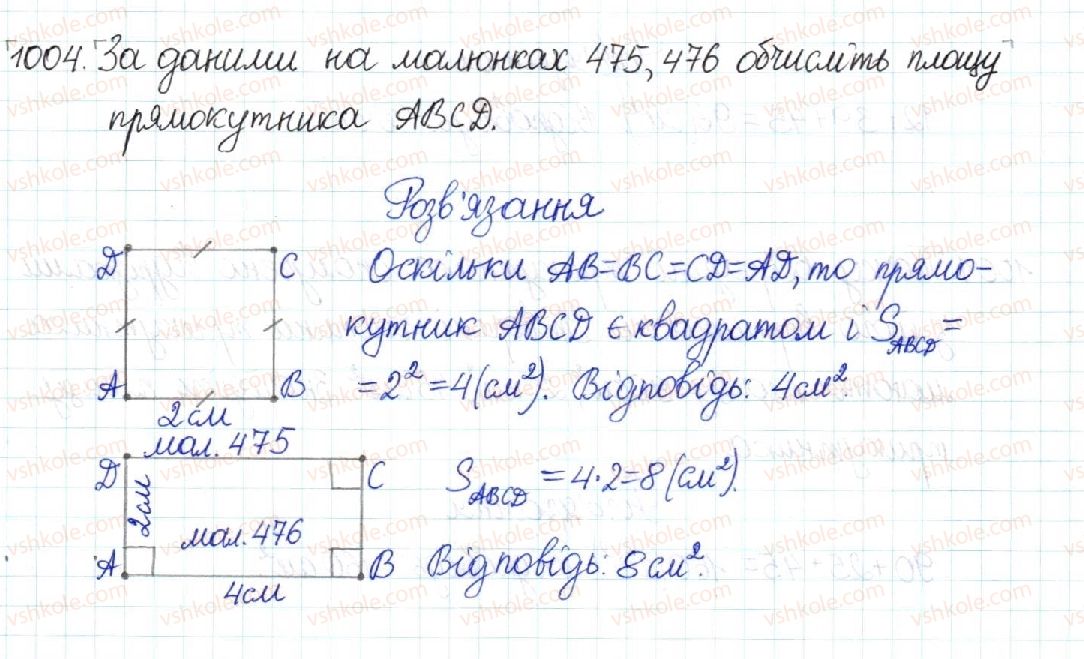 1004. За даними на малюнках 475, 476 обчисліть площу
прямокутника ABCD.
Розв'язання
D C
A B
2см
мал. 475
Оскільки AB=BC=CD=AD, то прямо-
кутник ABCD є квадратом і S_ABCD =
= 2² = 4 (см²). Відповідь: 4см².
D C
2см
мал. 476
A B
4см
S_ABCD = 4·2=8 (см²).
Відповідь: 8см².
vshkole.com